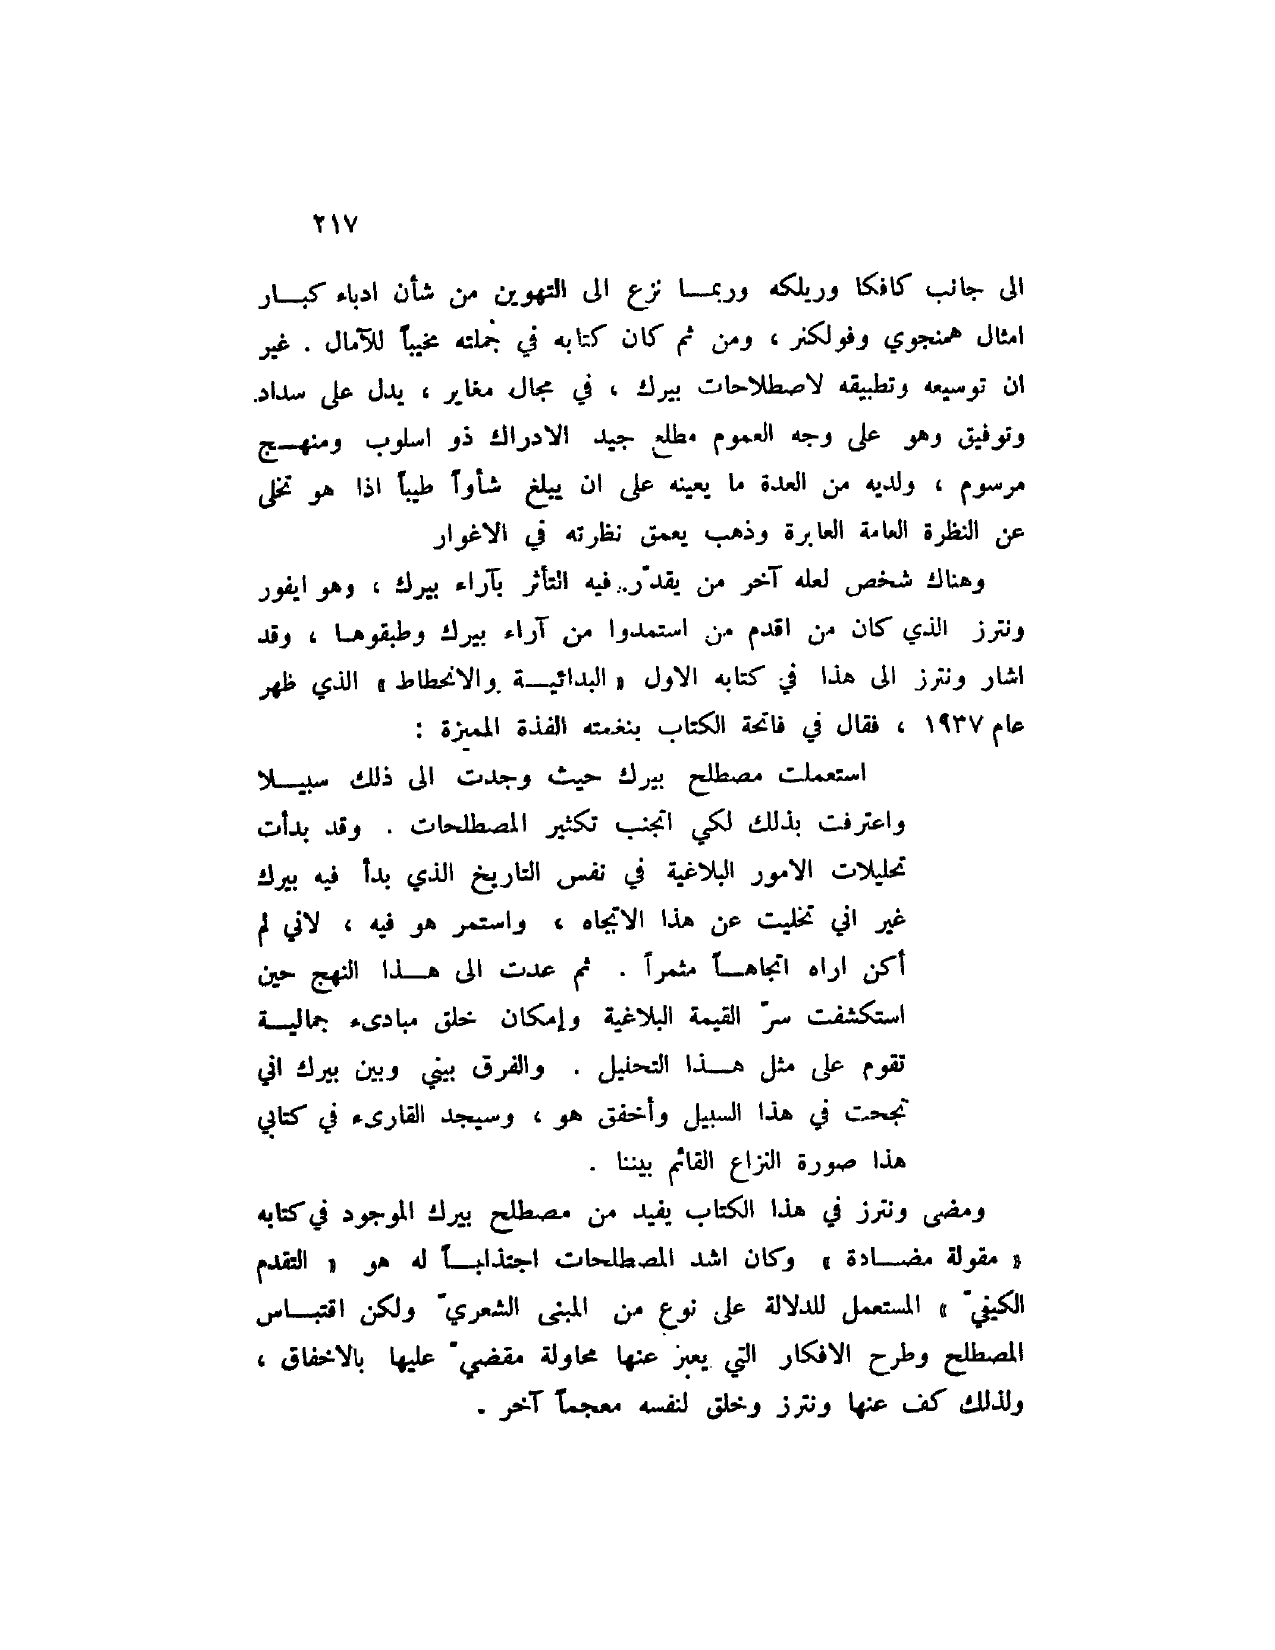 ٢١٧
الى جانب كافكا وريلكه وربمـا نزع الى التهوين من شأن ادباء كبـار
امثال همنجوي وفولكنر ، ومن ثم كان كتابه في جُملته مخيباً للآمال . غير
ان توسيعه وتطبيقه لاصطلاحات بيرك ، في مجال مغاير ، يدل على سداد.
وتوفيق وهو على وجه العموم مطلع جيد الادراك ذو اسلوب ومنهـج
مرسوم ، ولديه من العدة ما يعينه على ان يبلغ شأواً طيباً اذا هو تخلى
عن النظرة العامة العابرة وذهب يعمق نظرته في الاغوار
وهناك شخص لعله آخر من يقدّر.. فيه التأثر بآراء بيرك ، وهو ايفور
ونترز الذي كان من اقدم من استمدوا من آراء بيرك وطبقوهـا ، وقد
اشار ونترز الى هذا في كتابه الاول « البدائيـة والانحطاط » الذي ظهر
عام ١٩٣٧ ، فقال في فاتحة الكتاب بنغمته الفذة المميزة :
استعملت مصطلح بيرك حيث وجدت الى ذلك سبيـلا
واعترفت بذلك لكي اتجنب تكثير المصطلحات . وقد بدأت
تحليلات الامور البلاغية في نفس التاريخ الذي بدأ فيه بيرك
غير اني تخليت عن هذا الاتجاه ، واستمر هو فيه ، لاني لم
أكن اراه اتجاهـاً مثمراً . ثم عدت الى هـذا النهج حين
استكشفت سرّ القيمة البلاغية وإمكان خلق مبادىء جماليـة
تقوم على مثل هـذا التحليل . والفرق بيني وبين بيرك اني
نجحت في هذا السبيل وأخفق هو ، وسيجد القارىء في كتابي
هذا صورة النزاع القائم بيننا .
ومضى ونترز في هذا الكتاب يفيد من مصطلح بيرك الموجود في كتابه
« مقولة مضـادة » وكان اشد المصطلحات اجتذابـاً له هو « التقدم
الكيفيّ » المستعمل للدلالة على نوع من المبنى الشعريّ ولكن اقتبـاس
المصطلح وطرح الافكار التي يعبر عنها محاولة مقضيّ عليها بالاخفاق ،
ولذلك كف عنها ونترز وخلق لنفسه معجماً آخر .